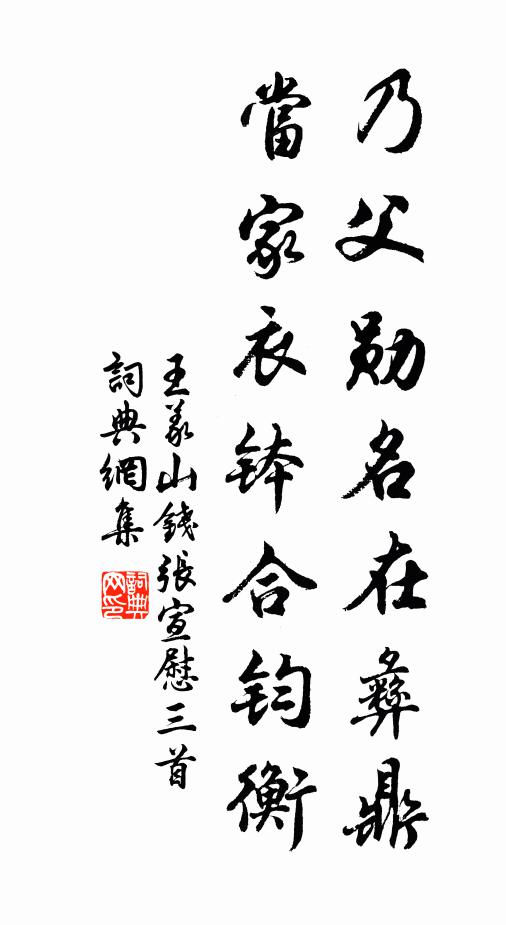 乃父勋名在彝鼎
當家衣鉢合鈞衡
王義山錢張宣慰三首
詞典網集
詞典网印